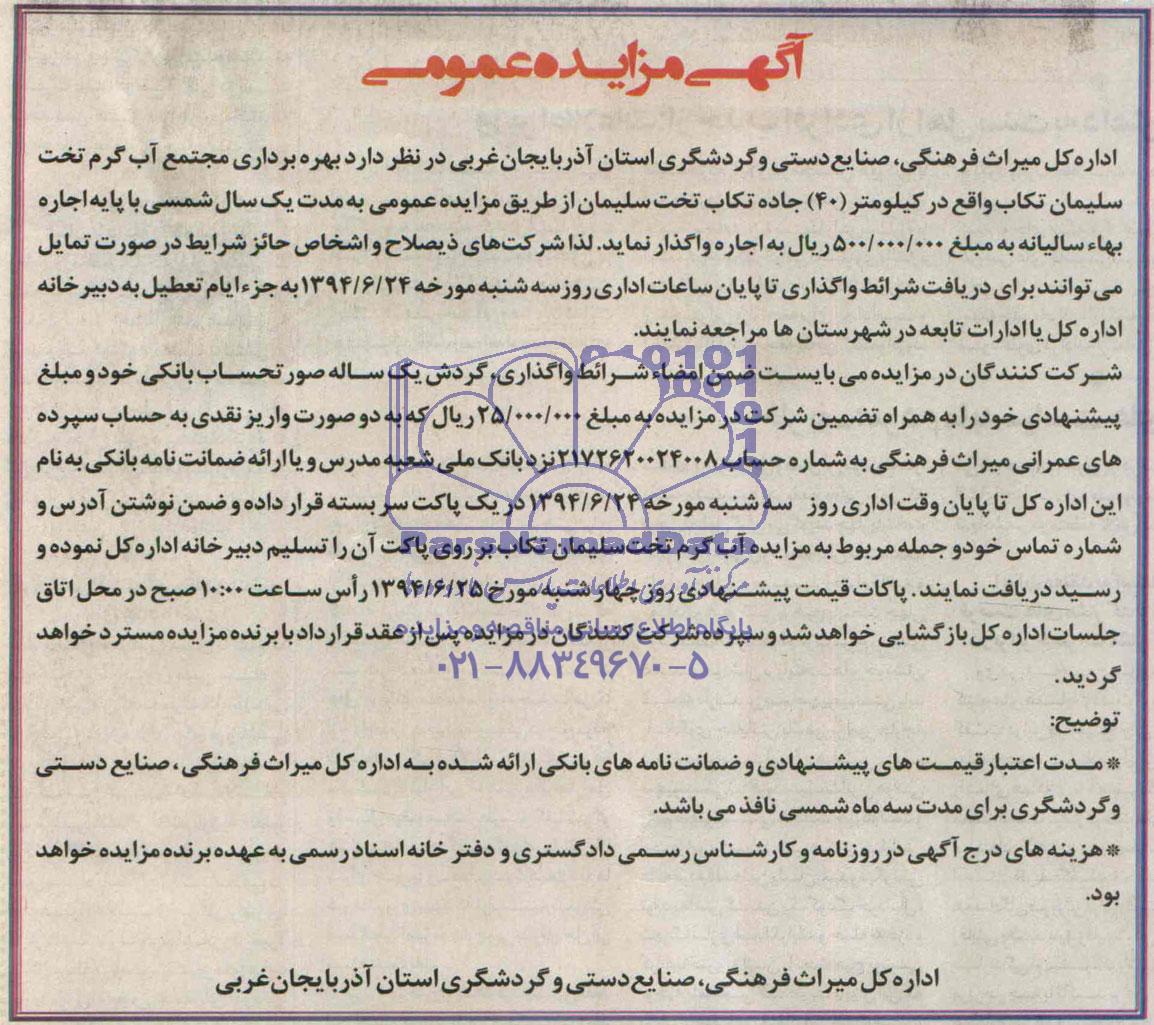 آگهی مزایده عمومی
اداره کل میراث فرهنگی، صنایع دستی و گردشگری استان آذربایجان غربی در نظر دارد بهره برداری مجتمع آب گرم تخت
سلیمان تکاب واقع در کیلومتر (۴۰) جاده تکاب تخت سلیمان از طریق مزایده عمومی به مدت یک سال شمسی با پایه اجاره
بهاء سالیانه به مبلغ ۵۰۰/۰۰۰/۰۰۰ ریال به اجاره واگذار نماید. لذا شرکت‌های ذیصلاح و اشخاص حائز شرایط در صورت تمایل
می توانند برای دریافت شرائط واگذاری تا پایان ساعات اداری روز سه شنبه مورخه ۱۳۹۴/۶/۲۴ به جزء ایام تعطیل به دبیرخانه
اداره کل یا ادارات تابعه در شهرستان ها مراجعه نمایند.
شرکت کنندگان در مزایده می بایست ضمن امضاء شرائط واگذاری، گردش یک ساله صورتحساب بانکی خود و مبلغ
پیشنهادی خود را به همراه تضمین شرکت در مزایده به مبلغ ۲۵/۰۰۰/۰۰۰ ریال که به دو صورت واریز نقدی به حساب سپرده
های عمرانی میراث فرهنگی به شماره حساب ۲۱۷۲۶۲۰۰۲۴۰۰۸ نزد بانک ملی شعبه مدرس و یا ارائه ضمانت نامه بانکی به نام
این اداره کل تا پایان وقت اداری روز سه شنبه مورخه ۱۳۹۴/۶/۲۴ در یک پاکت سر بسته قرار داده و ضمن نوشتن آدرس و
شماره تماس خود و جمله مربوط به مزایده آب گرم تخت سلیمان تکاب بر روی پاکت آن را تسلیم دبیرخانه اداره کل نموده و
ParsNamadData
رسید دریافت نمایند. پاکات قیمت پیشنهادی روز چهارشنبه مورخ ۱۳۹۴/۶/۲۵ رأس ساعت ۱۰:۰۰ صبح در محل اتاق
جلسات اداره کل بازگشایی خواهد شد و سپرده شرکت کنندگان در مزایده پس از عقد قرارداد با برنده مزایده مسترد خواهد
پایگاه اطلاع رسانی مناقصه و مزایده
گردید.
۰۲۱-۸۸۳۴۹۶۷۰-۵
توضیح:
* مدت اعتبار قیمت های پیشنهادی و ضمانت نامه های بانکی ارائه شده به اداره کل میراث فرهنگی، صنایع دستی
و گردشگری برای مدت سه ماه شمسی نافذ می باشد.
* هزینه های درج آگهی در روزنامه و کارشناس رسمی دادگستری و دفتر خانه اسناد رسمی به عهده برنده مزایده خواهد
بود.
اداره کل میراث فرهنگی، صنایع دستی و گردشگری استان آذربایجان غربی